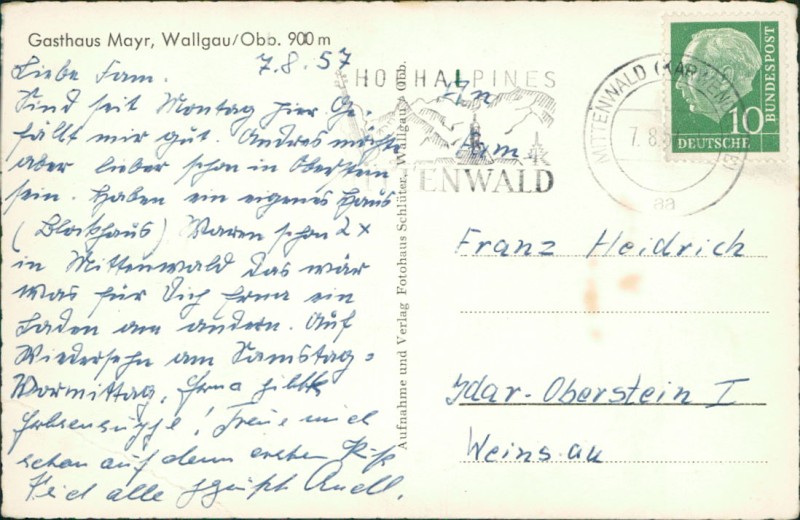 Gasthaus Mayr, Wallgau/Obb. 900 m
7.8.57
Liebe Fam.
Sind seit Montag hier Ge-
fällt mir gut. Andres möchte
aber lieber schon in Oberstein
sein. Haben ein eigenes Haus
(Blockhaus) Waren schon 2x
in Mittenwald Das wär
was für Dich Erna ein
Laden am andern. Auf
Wiedersehn am Samstag-
Vormittag, Erna
Erbsensuppe! Freue mich
schon auf denn ersten
Seid alle gegrüßt
Aufnahme und Verlag Fotohaus Schlüter, Wallgau Obb.
HOCHALPINES
MITTENWALD
MITTENWALD (KARWENDEL)
7.8.57
aa
10
DEUTSCHE
BUNDESPOST
An
Fam.
Franz Heidrich
Idar-Oberstein I
Weinsau